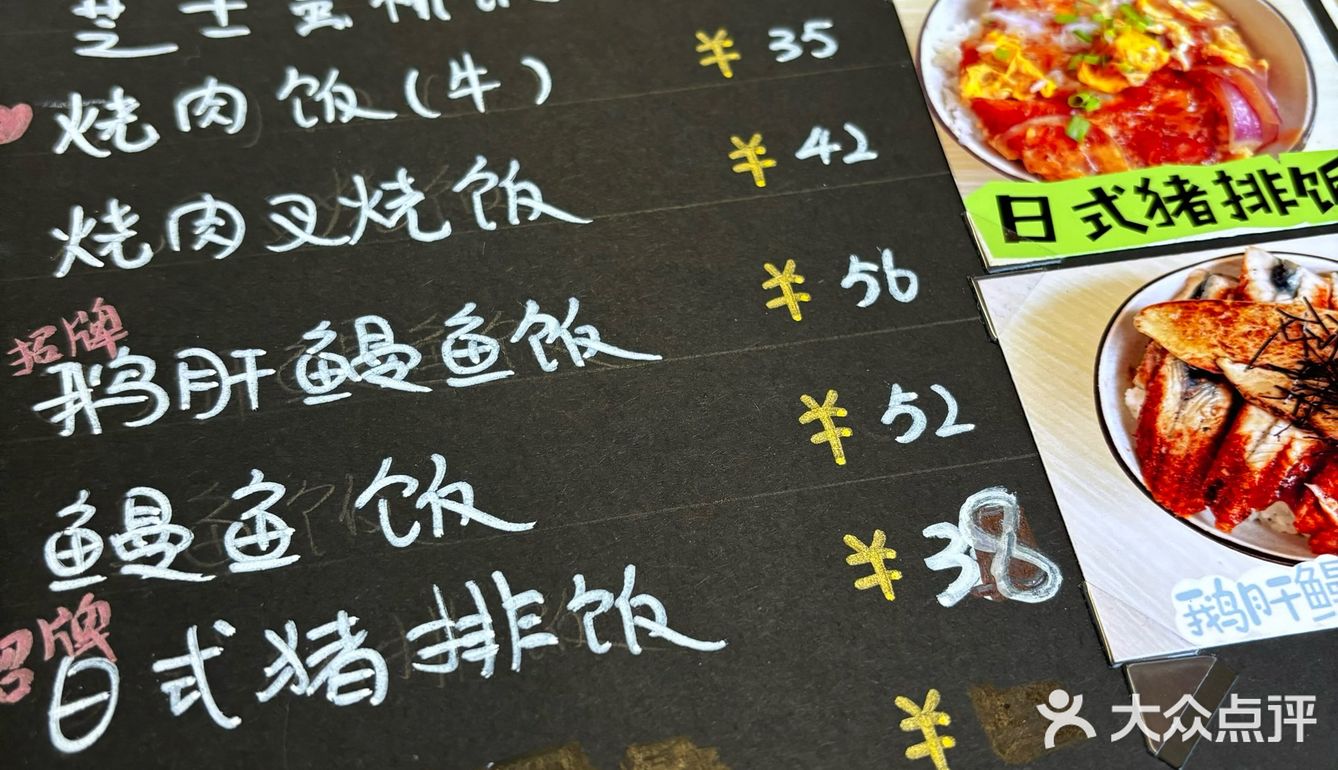 芝士
烧肉饭(牛) ¥35
烧肉叉烧饭 ¥42
招牌
鹅肝鳗鱼饭 ¥56
鳗鱼饭 ¥52
招牌
日式猪排饭 ¥38
¥
日式猪排饭
鹅肝鳗
大众点评